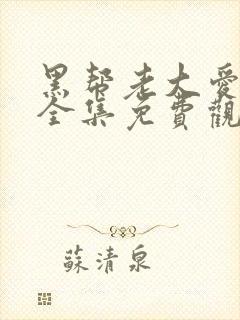 黑帮老大愛
全集免費觀
蘇清泉